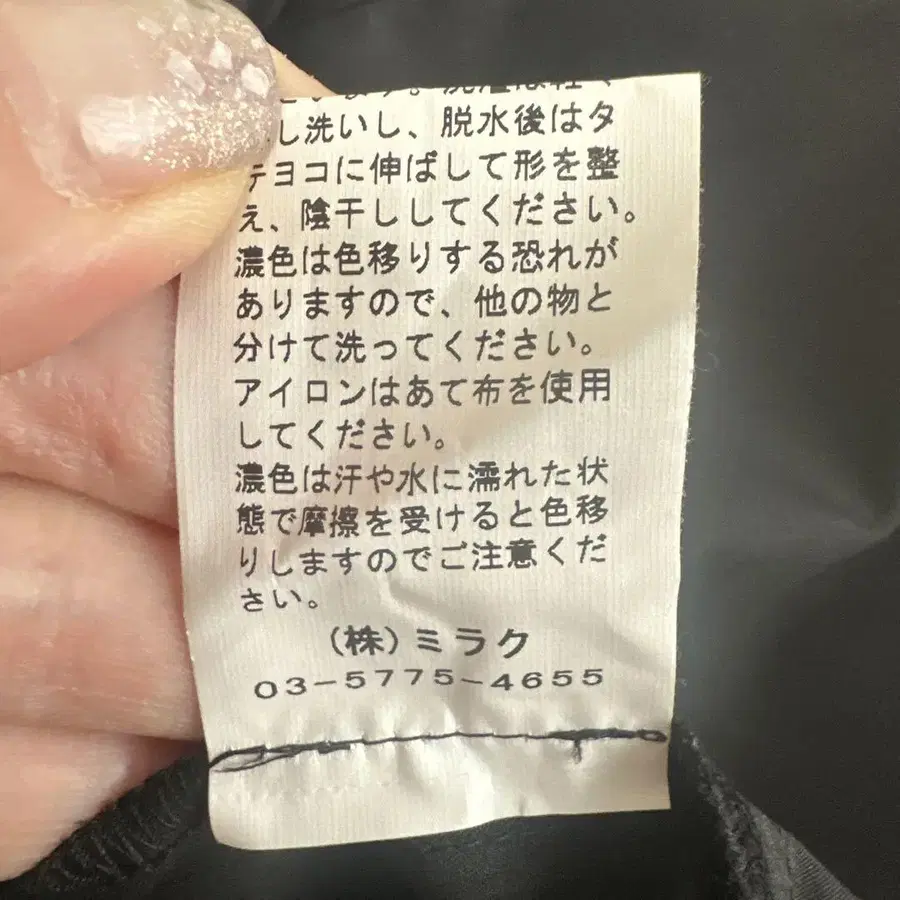 し洗いし、脱水後はタ
テヨコに伸ばして形を整
え、陰干ししてください。
濃色は色移りする恐れが
ありますので、他の物と
分けて洗ってください。
アイロンはあて布を使用
してください。
濃色は汗や水に濡れた状
態で摩擦を受けると色移
りしますのでご注意くだ
さい。
(株)ミラク
03-5775-4655